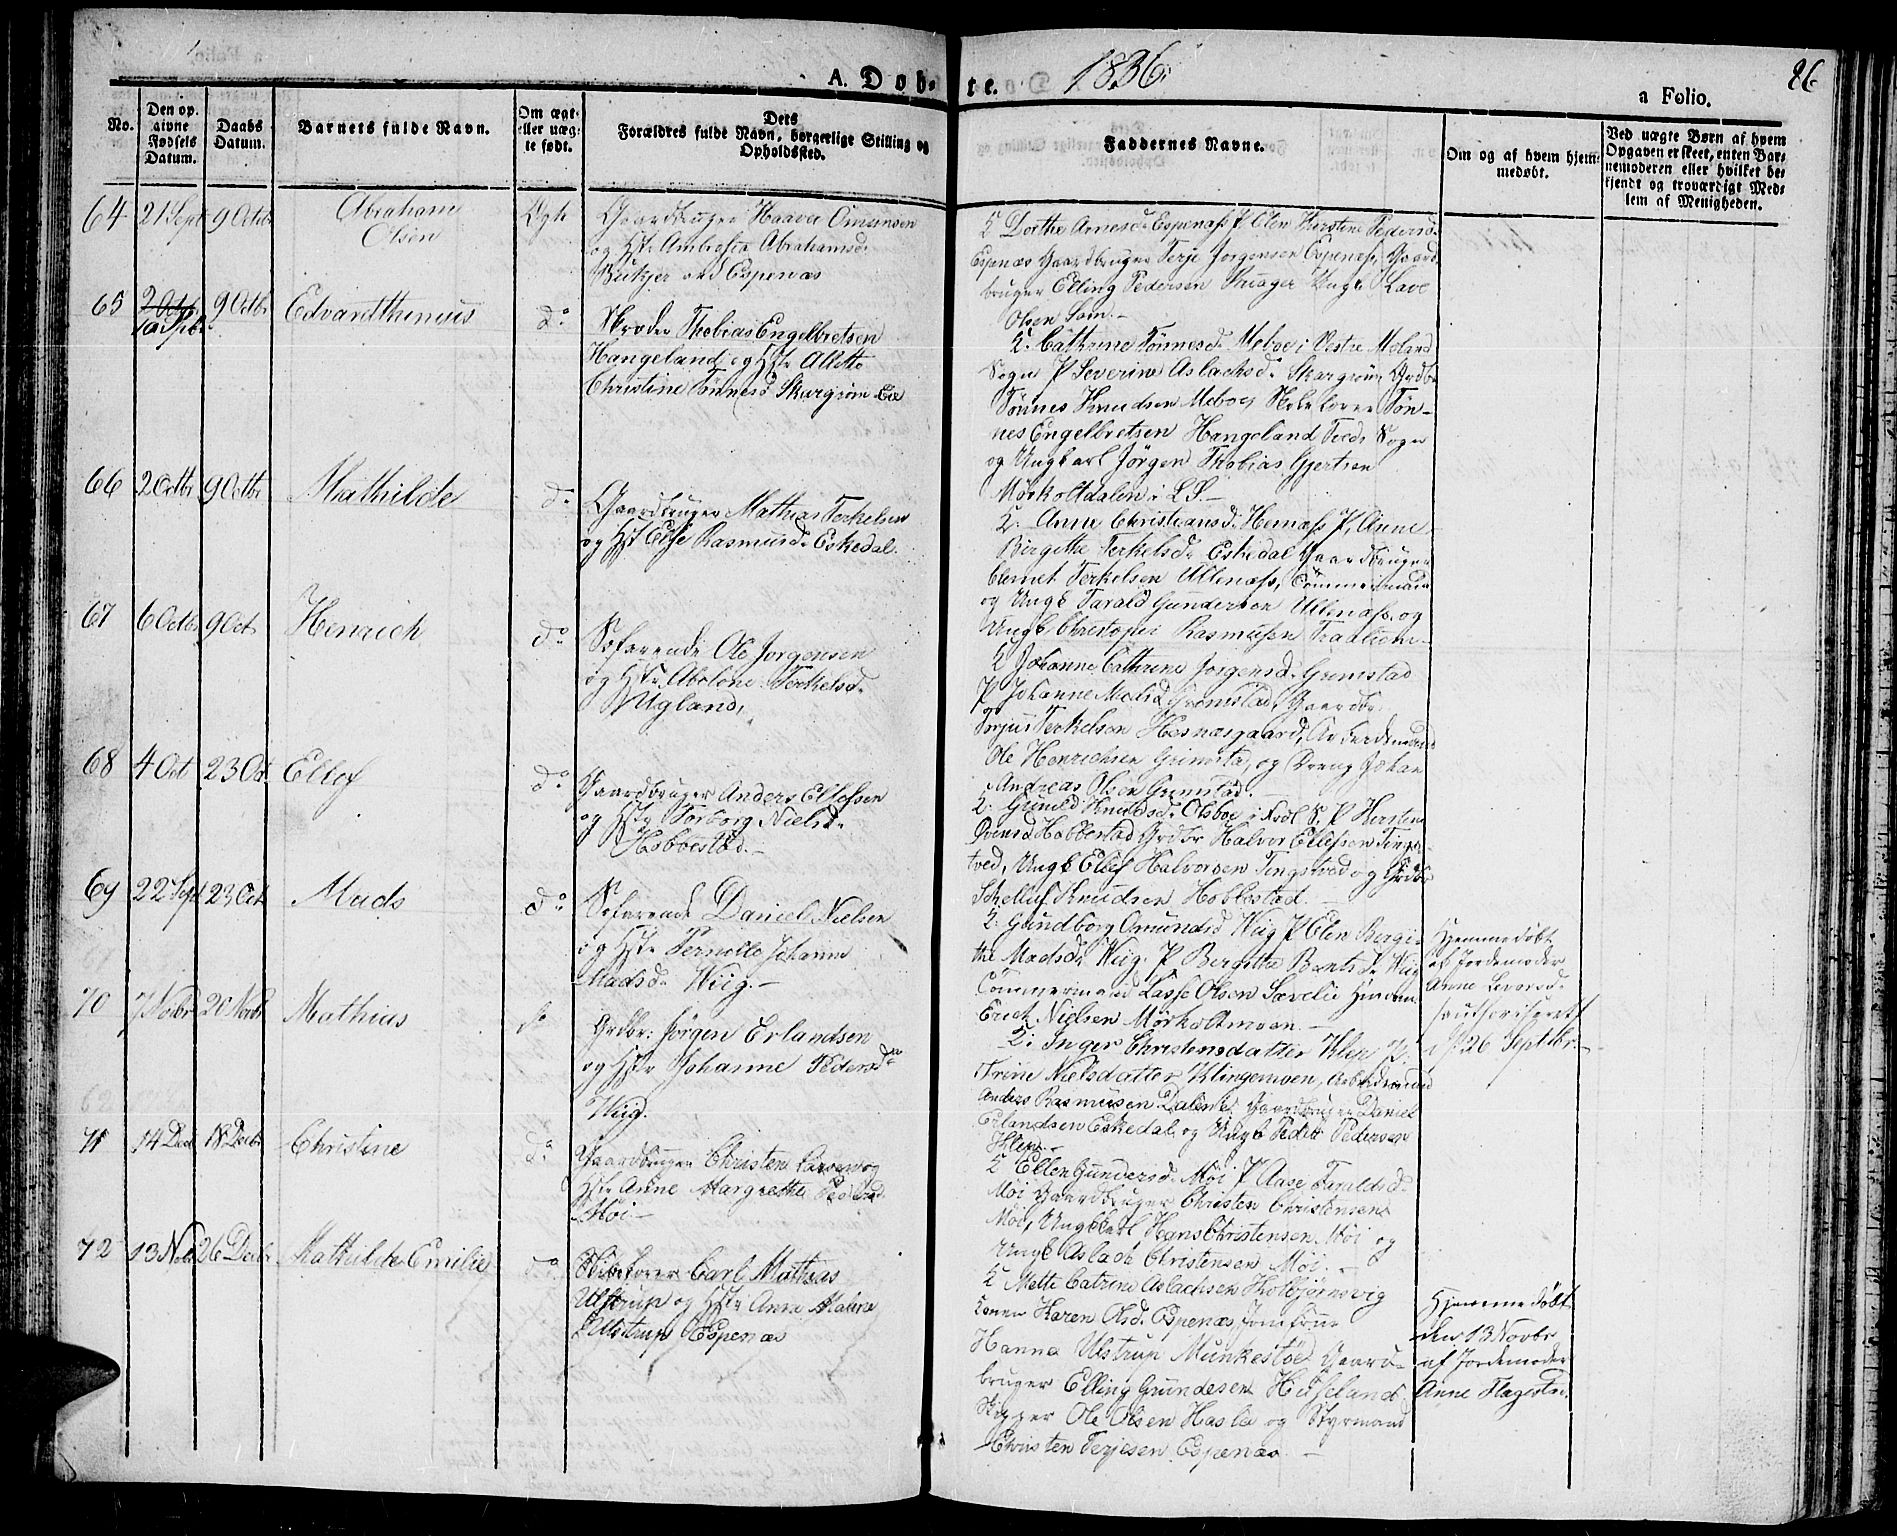 A. Døb-
te. 1836.
a Folio.
No.
Den op-
givne
Fødsels
Datum.
Daabs
Datum.
Barnets fulde Navn.
Om ægte
eller uæg-
te født.
Dets
Forældres fulde Navn, borgerlige Stilling og
Opholdssted.
Faddernes Navne.
Om og af hvem hjem-
medøbt.
Ved uægte Børn af hvem
Opgaven er skeet, enten Bar-
nemoderen eller hvilket be-
kjendt og troværdigt Med-
lem af Menigheden.
64 21 Sept 9 Octbr Abraham
Olsen
Ægte
Gaardbruger Haaver Omunsen
og Hst: Ambrosia Abrahamsd:
Birkjer ved Espenæs
Dorthe Arnesd: Espenæs P Elen Kirstine Pedersd:
Espenæs Gaardbruger Terje Jorgensen Espenæs, Gaard
bruger Elling Pedersen Ungk Lave
Olsen Som.-
65 9 Octbr Edvardthinius do
Skræder Thobias Engelbretsen
Hangeland og Hst: Alette
Christine Tönnesd Skargrøm Eie
K: Cathrine Tönnesd: Meboe i Oestre Moland
Sogn P Severine Aslachsd: Skargrøm, Grdbr
Tønnes Knudsen Meboe, Skolelærer Tøn-
nes Engelbretsen Hangeland Sogn
og Ungkarl Jörgen Thobias Gjertsen
Mørkoltdalen i L S.-
66 2 Octbr 9 Octbr Mathilde do
Gaardbruger Mathias Terkelsen
og Hst: Else Rasmusd: Eskedal.
K: Anne Christiansd: Hemnæs P. Anne
Birgitte Terkelsd: Eskedal Gaardbruger
Clemet Terkelsen Ullenæss, Tømmermand
og Ungk Tarald Gundersen Ullenæss, og
Ungk Christopher Rasmussen
67 6 Octbr 9 Oct: Henrich do
Søfarende Ole Jorgensen
og Hst: Abolone Terkelsd:
Ugland,
K Johanne Cathrine Jorgensd: Grimstad
P Johanne Madsd Grimstad, Gaardbr.
Torjus Terkelsen Hesnæsgaard, Arbeidsmand
Ole Henrichsen Grimsta, og Dreng Johan
Andreas Olsen Grimstad.
68 4 Oct 23 Oct Ellef do
Gaardbruger Anders Ellefsen
og Hst: Torborg Nielsd:
Hobbestad.-
K: Gunild Knudsd: Olsboe i P Kirsten
Svensd Hobbestad Grdbr Halvor Ellefsen Tings-
tved, Ungk Ellef Halvorsen Tingstved og Grdbr
Schelluf Knudsen Hobbestad.
69 22 Sept 23 Oct Mads do
Søfarende Daniel Nielsen
og Hst: Pernelle Johanne
Madsd: Wiig.-
K: Gundborg Omundsd Wiig P Elen Bergi-
the Madsd: Wiig. P Bergitta Bentsd: Wiig
Tömmermand Lasse Olsen Sævelie
Erich Nielsen Mørkoltmoen.-
Hjemmedöbt
af Jordemoder
Anne Levorsd:
(authoriseret)
d: 26 Septbr.-
70 7 Novbr 20 Novbr Mathias do
Grdbr: Jörgen Erlandsen
og Hst: Johanne Pedersdr
Wiig.
K: Inger Christensdatter Klep P.
Trine Nielsdatter Klingemoen, Arbeidsmand
Anders Rasmussen Dalene, Gaardbruger Daniel
Erlandsen Eskedal og Ungk Peder Pedersen
Klep.-
71 14 Dec 18 Decbr Christine do
Gaardbruger Christen Larsen og
Hst: Anne Margrethe Pedersd:
Møi.-
K Ellen Gundersd: Møi P Aase Taraldsd:
Møi Gaardbruger Christen Christensen
Møi, Ungkarl Hans Christensen Møi og
Ungk Aslach Christensen Møi.-
72 13 Nov 26 Decbr Mathilde Emilie do
Skibsfører Carl Mathias
Ulstrup og Hst: Anna Malene
Ulstrup Espenæs
K Mette Catrine Aslachsen Kolbjørnsvig
Konen Karen Olsd: Espenæs Jomfrue
Hanna Ulstrup Munkestøe Gaard-
bruger Elling Gundesen Hæseland
Skipper Ole Olsen Haslæ og Styrmand
Christen Terjesen Espenæs.-
Hjemmedöbt
den 13 Novbr
af Jordemoder
Anne